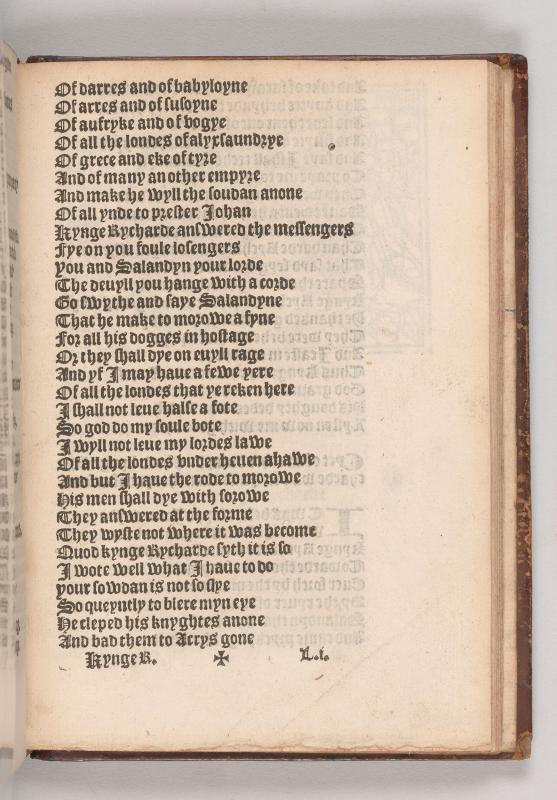 Of darres and of babyloyne
Of arres and of susoyne
Of aufryke and of bogye
Of all the londes of alyxsaundrye
Of grece and eke of tyre
And of many an other empyre
And make he wyll the soudan anone
Of all ynde to prester Johan
Kynge Rycharde answered the messengers
Fye on you foule losengers
you and Salandyn your lorde
The deuyll you hange with a corde
Go swythe and saye Salandyne
That he make to morowe a fyne
For all his dogges in hostage
Or they shall dye on euyll rage
And yf I may haue a fewe yere
Of all the londes that ye reken here
I shall not leue halfe a fote
So god do my soule bote
I wyll not leue my lordes lawe
Of all the londes vnder heuen ahawe
And but I haue the rode to morowe
His men shall dye with sorowe
They answered at the forme
They wyste not where it was become
Quod kynge Rycharde syth it is so
I wote well what I haue to do
your sowdan is not so slye
So queyntly to blere myn eye
He cleped his knyghtes anone
And bad them to Acrys gone
Kynge R. ✠ L.i.